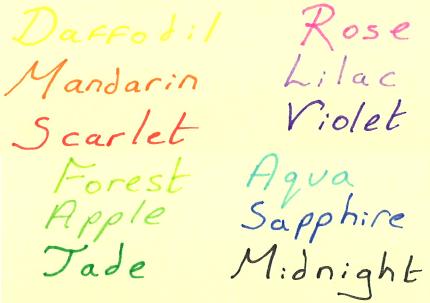 Daffodil
Mandarin
Scarlet
Forest
Apple
Jade
Rose
Lilac
Violet
Aqua
Sapphire
Midnight